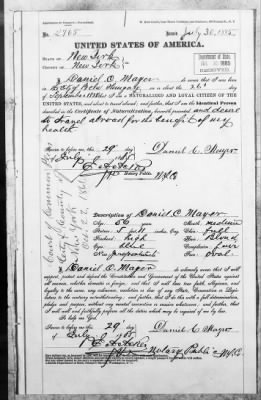 No. 2965
Issued July 30, 1885
UNITED STATES OF AMERICA.
STATE OF New York
COUNTY OF New York
RECEIVED
I Daniel C. Mayer do swear that I was born
in the City of Hungary on the 26th
day of September
that I am a NATURALIZED AND LOYAL CITIZEN OF THE
UNITED STATES, and about to travel abroad; and further, that I am the Identical Person
described in the Certificate of Naturalization, herewith presented and desire
to travel abroad for the benefit of my
health
Sworn to before me this 29 day
of July 1885
Daniel C. Mayer
Notary Public
N Y Co
Description of Daniel C Mayer
Age, 56 years
Mouth, medium
Stature, 5 feet inches
Chin, full
Forehead, high
Hair,
Eyes, blue
Complexion, fair
Nose, proportionate
Face, oval
I Daniel C. Mayer do solemnly swear that I will
support, protect and defend the Constitution and Government of the United States against
all enemies, whether domestic or foreign; and that I will bear true faith, allegiance, and
loyalty to the same, any ordinance, resolution or law of any State, Convention or Legislature
to the contrary notwithstanding; and further, that I do this with a full determination,
pledge and purpose, without any mental reservation or evasion whatsoever; and further, that
I will well and faithfully perform all the duties which may be required of me by law.
So help me God.
Sworn to before me this 29 day
of July 1885
Daniel C. Mayer
Notary Public N Y Co
Court of Common Pleas
City & County of
New York
Oct 22